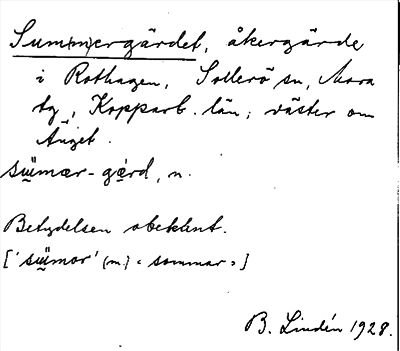 Sum(m)ergärdet, åkergärde
i Rothagen, Sollerö sn, Mora
tg, Kopparb. län; väster om
Änget.
sümær-gærd, n.
Betydelsen obekant.
['sümor' (m.) < sommar >]
B. Lindén 1928.